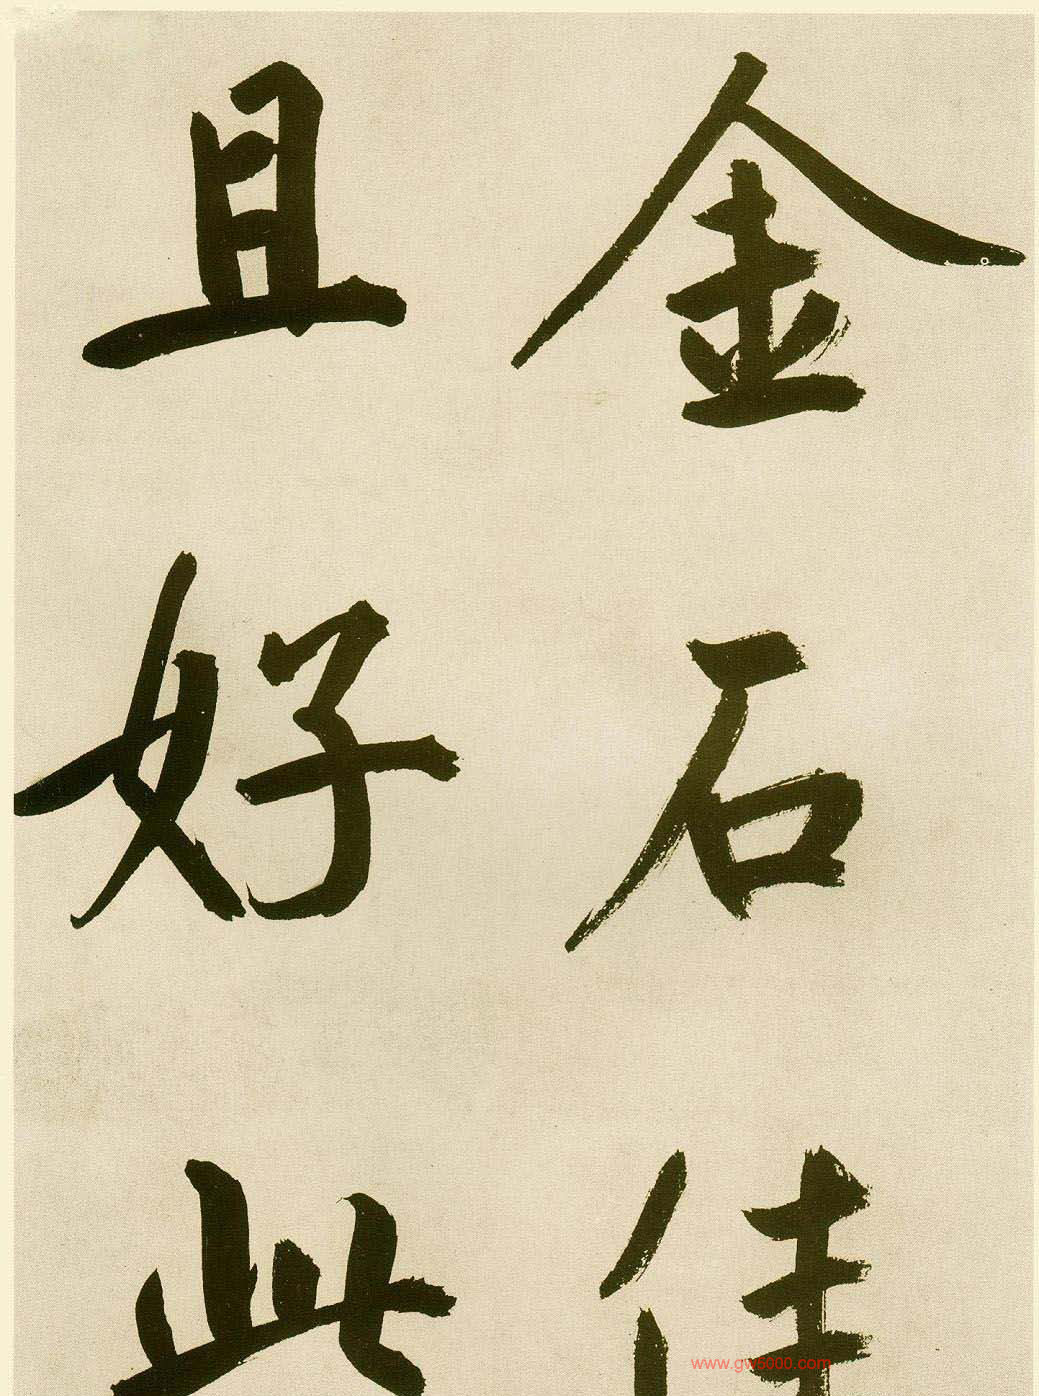 金石佳
且好此
www.gw6000.com